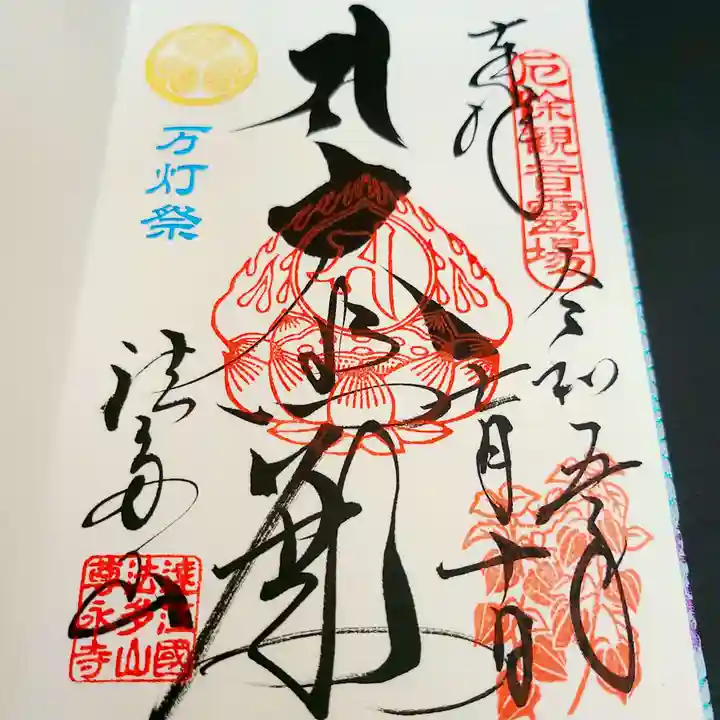 奉拝
厄除観音霊場
令和五年
七月十日
万灯祭
法多山
遠江國
法多山
尊永寺